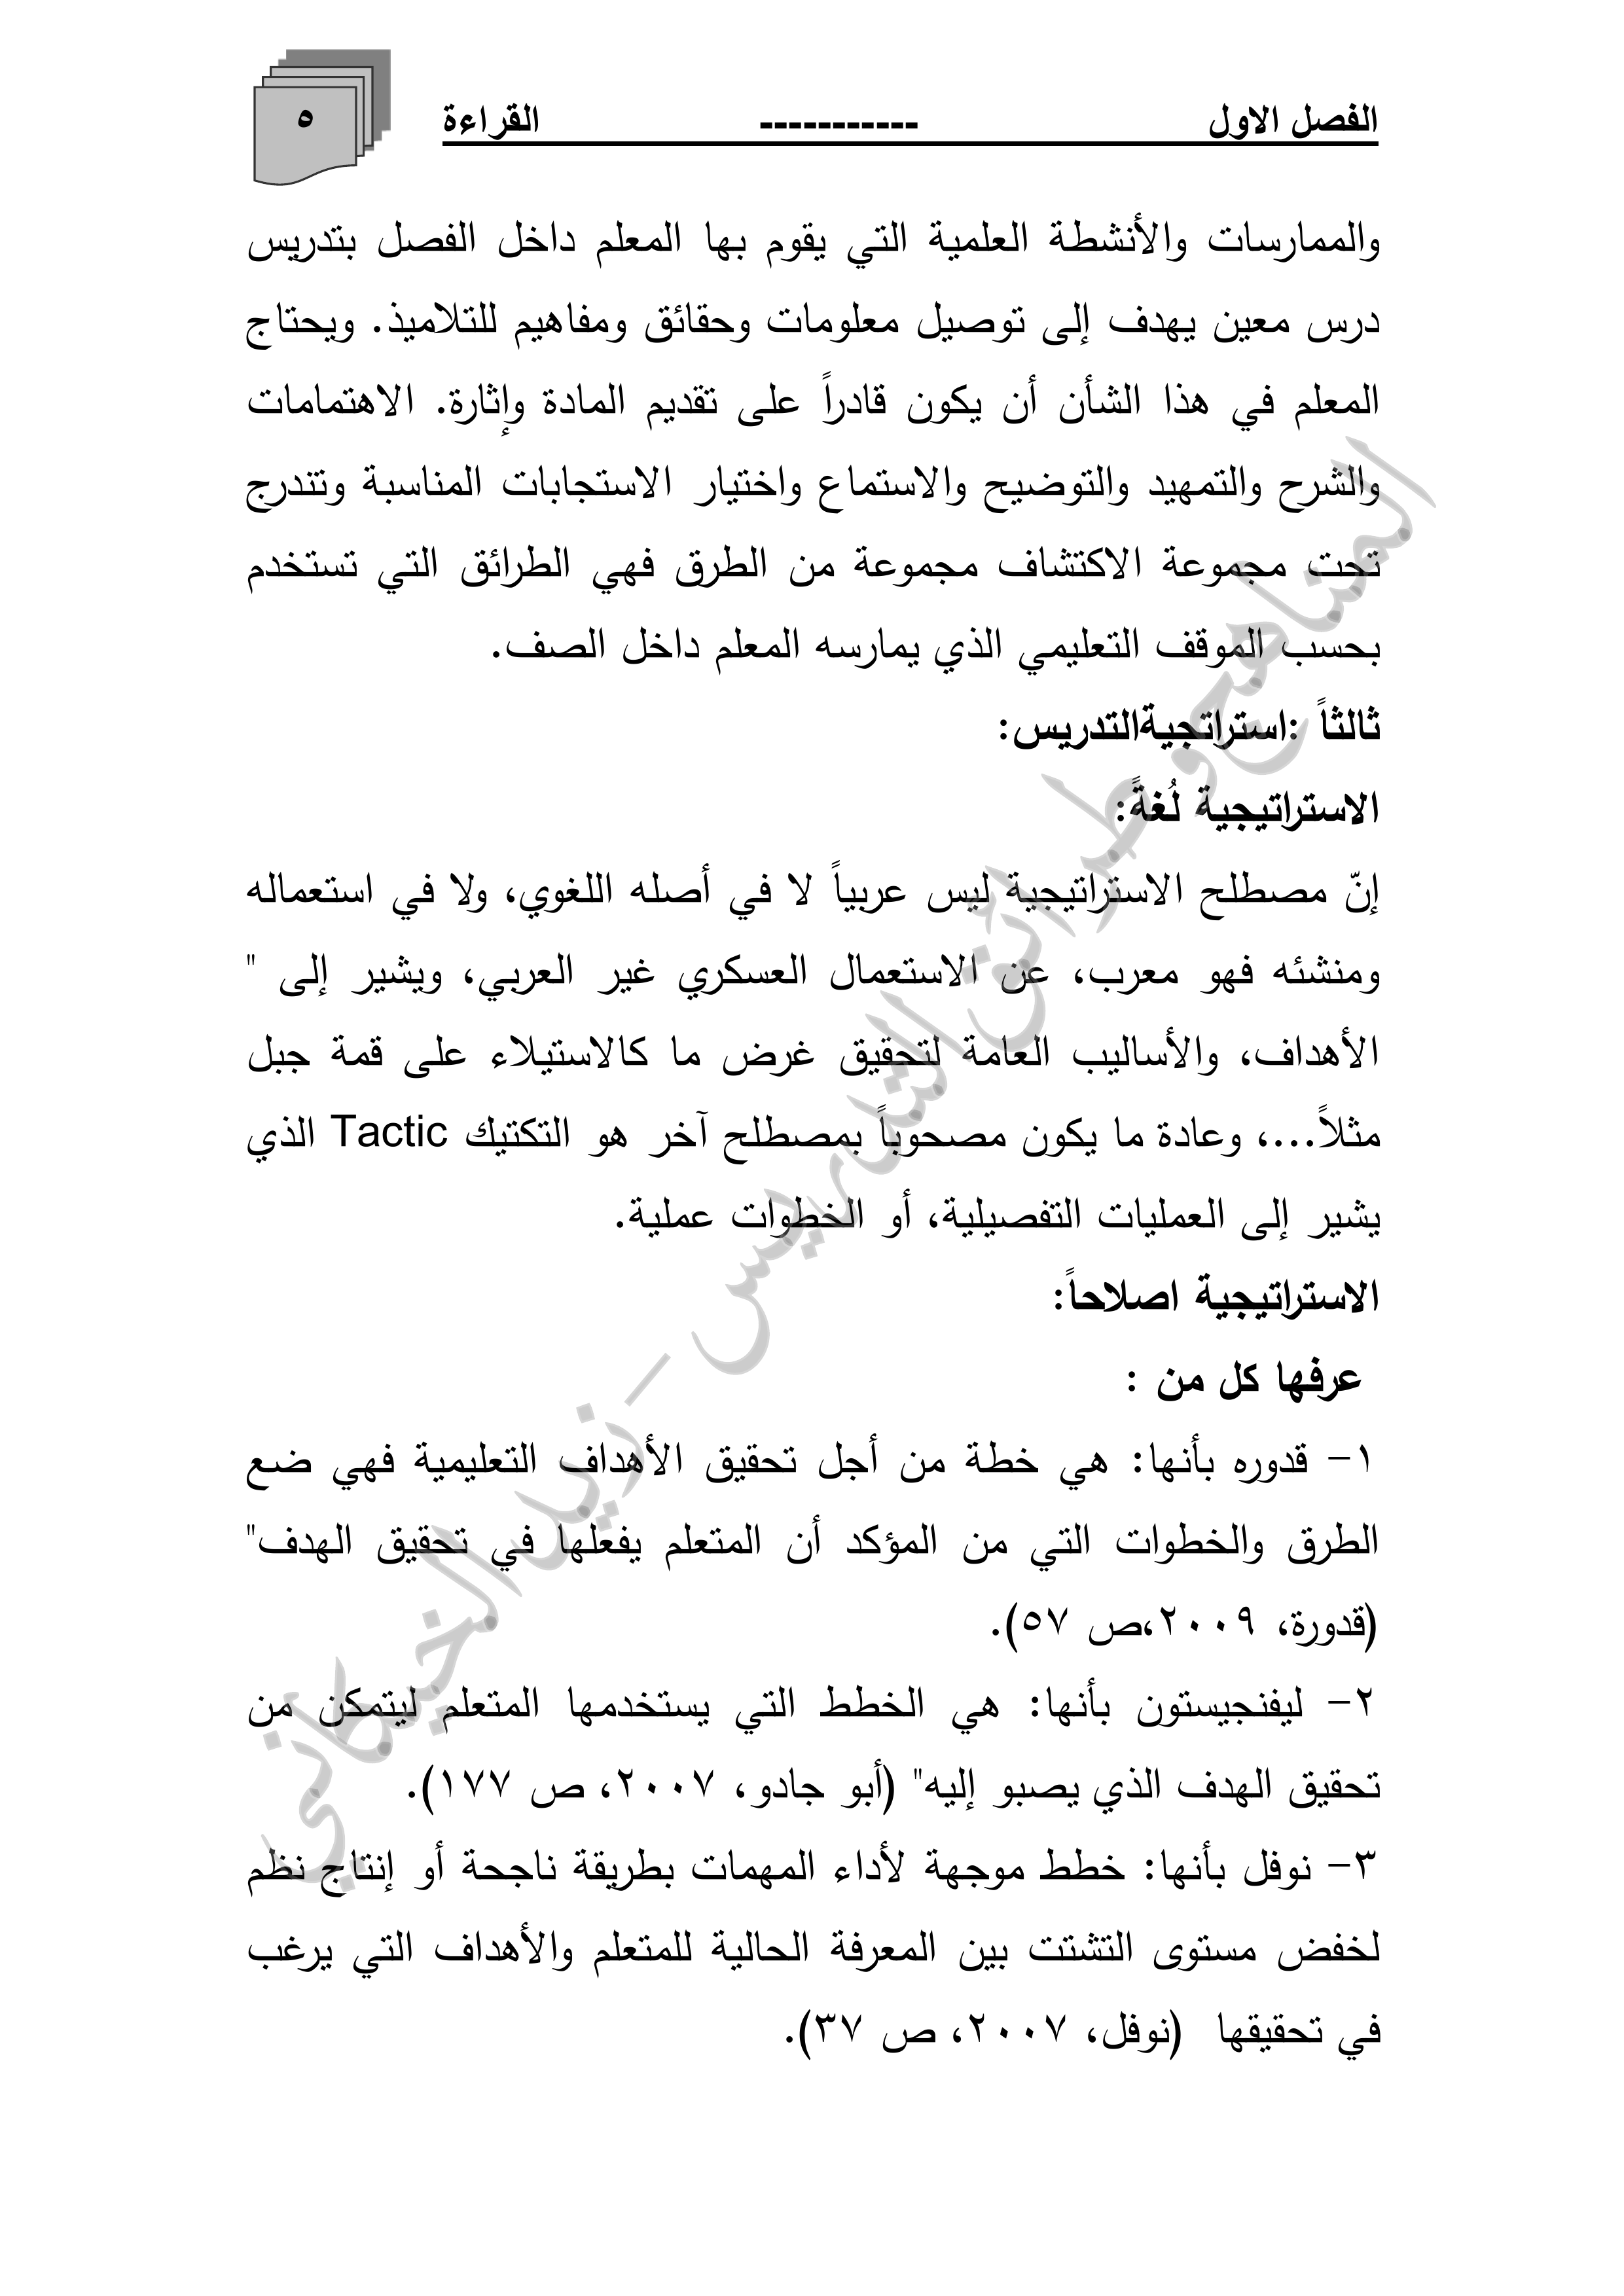 الفصل الاول ----------- القراءة
٥
والممارسات والأنشطة العلمية التي يقوم بها المعلم داخل الفصل بتدريس
درس معين يهدف إلى توصيل معلومات وحقائق ومفاهيم للتلاميذ. ويحتاج
المعلم في هذا الشأن أن يكون قادراً على تقديم المادة وإثارة. الاهتمامات
والشرح والتمهيد والتوضيح والاستماع واختيار الاستجابات المناسبة وتندرج
تحت مجموعة الاكتشاف مجموعة من الطرق فهي الطرائق التي تستخدم
بحسب الموقف التعليمي الذي يمارسه المعلم داخل الصف.
ثالثاً :استراتجيةالتدريس:
الاستراتيجية لُغةً:
إنّ مصطلح الاستراتيجية ليس عربياً لا في أصله اللغوي، ولا في استعماله
ومنشئه فهو معرب، عن الاستعمال العسكري غير العربي، ويشير إلى "
الأهداف، والأساليب العامة لتحقيق غرض ما كالاستيلاء على قمة جبل
مثلاً...، وعادة ما يكون مصحوباً بمصطلح آخر هو التكتيك Tactic الذي
يشير إلى العمليات التفصيلية، أو الخطوات عملية.
الاستراتيجية اصلاحاً:
عرفها كل من :
١- قدوره بأنها: هي خطة من أجل تحقيق الأهداف التعليمية فهي ضع
الطرق والخطوات التي من المؤكد أن المتعلم يفعلها في تحقيق الهدف"
(قدورة، ٢٠٠٩،ص ٥٧).
٢- ليفنجيستون بأنها: هي الخطط التي يستخدمها المتعلم ليتمكن من
تحقيق الهدف الذي يصبو إليه" (أبو جادو، ٢٠٠٧، ص ١٧٧).
٣- نوفل بأنها: خطط موجهة لأداء المهمات بطريقة ناجحة أو إنتاج نظم
لخفض مستوى التشتت بين المعرفة الحالية للمتعلم والأهداف التي يرغب
في تحقيقها (نوفل، ٢٠٠٧، ص ٣٧).
المناهج وطرائق التدريس - زيد الخيكاني